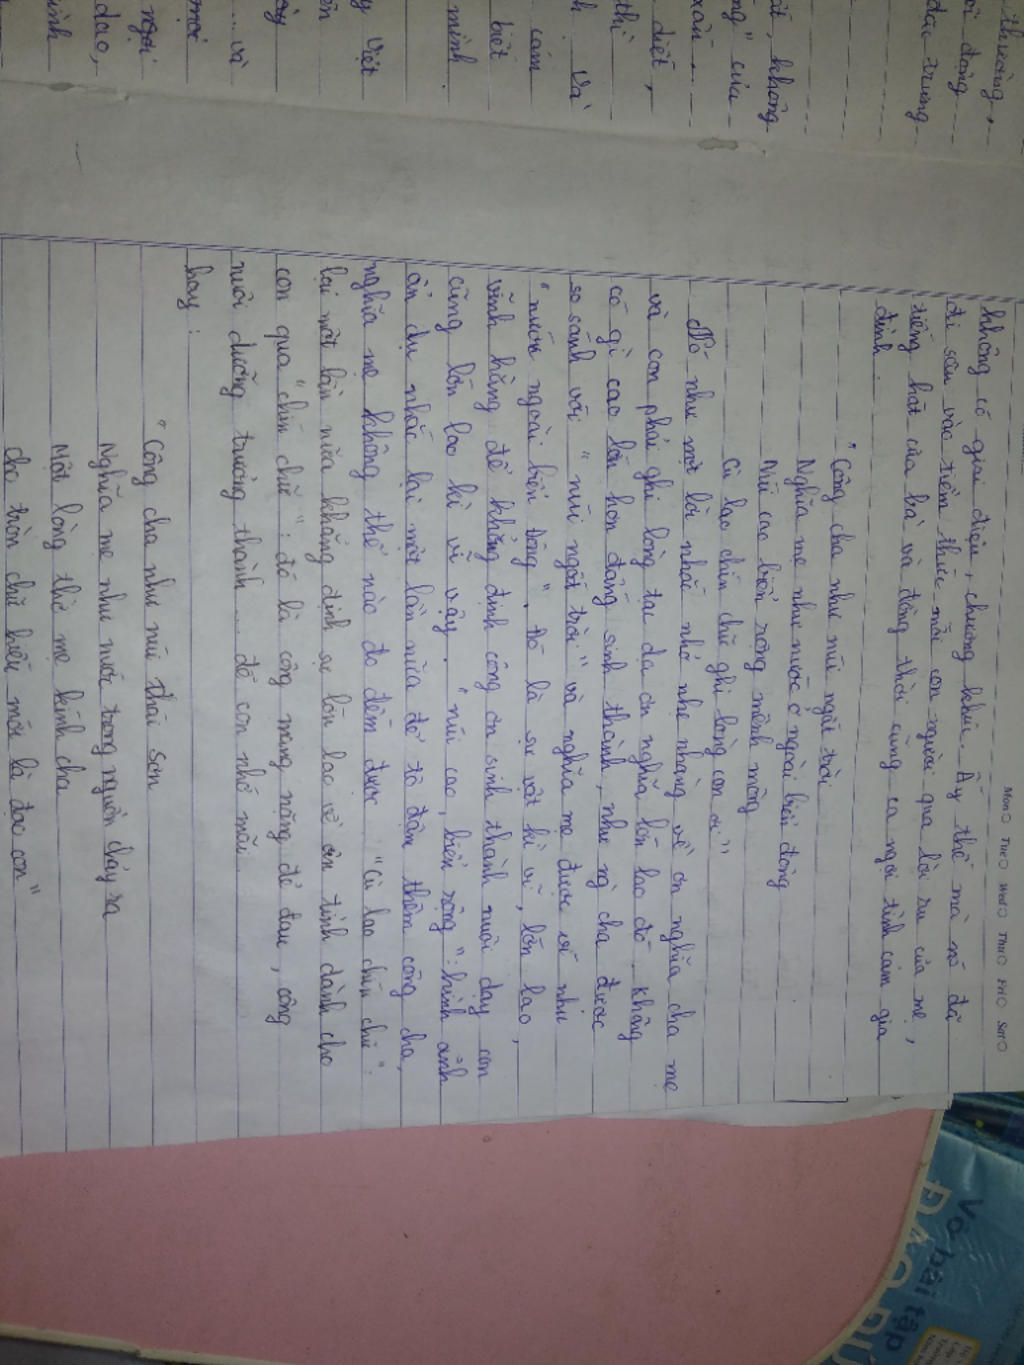 thường,
ời động
đặc trưng
ất, không
ng" của
xăn...
diết,
thì
h. Và
cảm
biết
mình.
y Việt
ên
... và
mọi
ngợi
dao,
mình
Mon Tue Wed Thu Fri Sat
không có giai điệu, chương khúc. Ấy thế mà nó đã
đi sâu vào tiềm thức mỗi con người qua lời ru của mẹ,
tiếng hát của bà và đồng thời cũng ca ngợi tình cảm gia
đình.
"Công cha như núi ngất trời
Nghĩa mẹ như nước ở ngoài biển đông
Núi cao biển rộng mênh mông
Cù lao chín chữ ghi lòng con ơi"
Nó như một lời nhắc nhở nhẹ nhàng về ơn nghĩa cha mẹ
và con phải ghi lòng tạc dạ ơn nghĩa lớn lao đó. không
có gì cao lớn hơn đấng sinh thành, như cha được
so sánh với "núi ngất trời" và nghĩa mẹ được ví như
"nước ngoài biển đông". Đó là sự vật kì vĩ, lớn lao,
vĩnh hằng để khẳng định công ơn sinh thành nuôi dạy con
cũng lớn lao kì vĩ vậy. "núi cao, biển rộng": hình ảnh
ẩn dụ nhắc lại một lần nữa để tô đậm thêm công cha,
nghĩa mẹ không thể nào đo đếm được "Cù lao chín chữ":
lại một lần nữa khẳng định sự lớn lao về ân tình dành cho
con qua "chín chữ": đó là công mang nặng đẻ đau, công
nuôi dưỡng trưởng thành ... để con nhớ mãi.
hay:
"Công cha như núi thái sơn
Nghĩa mẹ như nước trong nguồn chảy ra
Một lòng thờ mẹ kính cha
cho tròn chữ hiếu mới là đạo con"
Vở bài tập